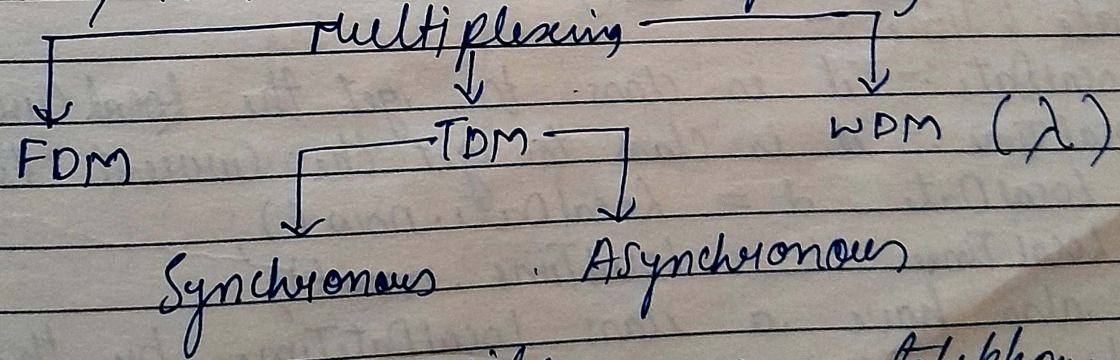 Multiplexing
FDM TDM WDM (λ)
Synchronous Asynchronous